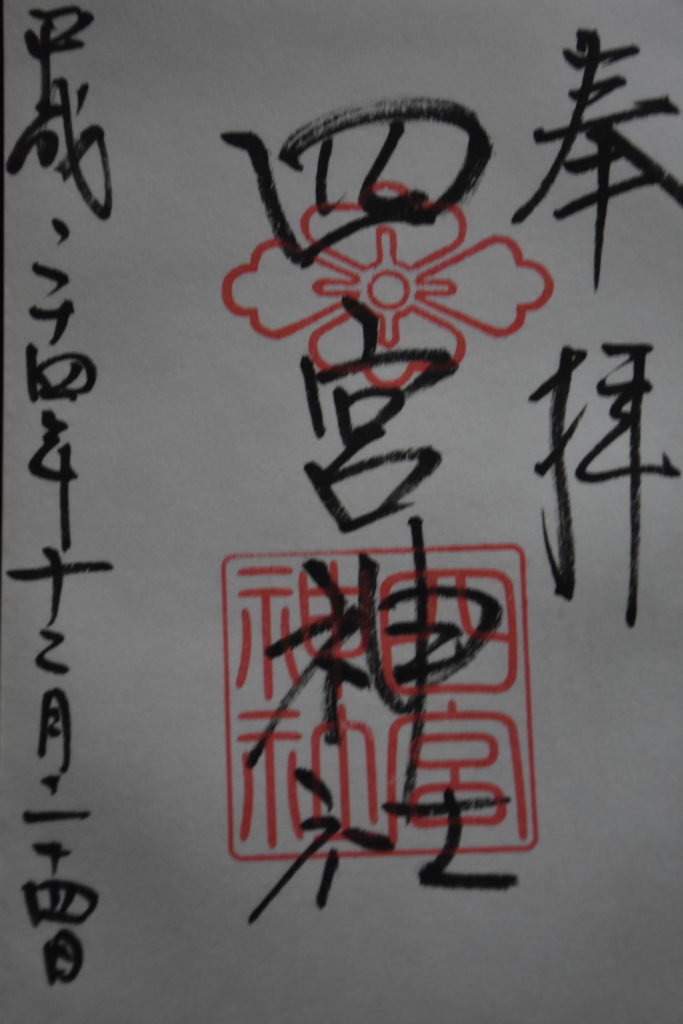 奉拝
四宮神社
四宮神社
平成二十四年十二月二十四日